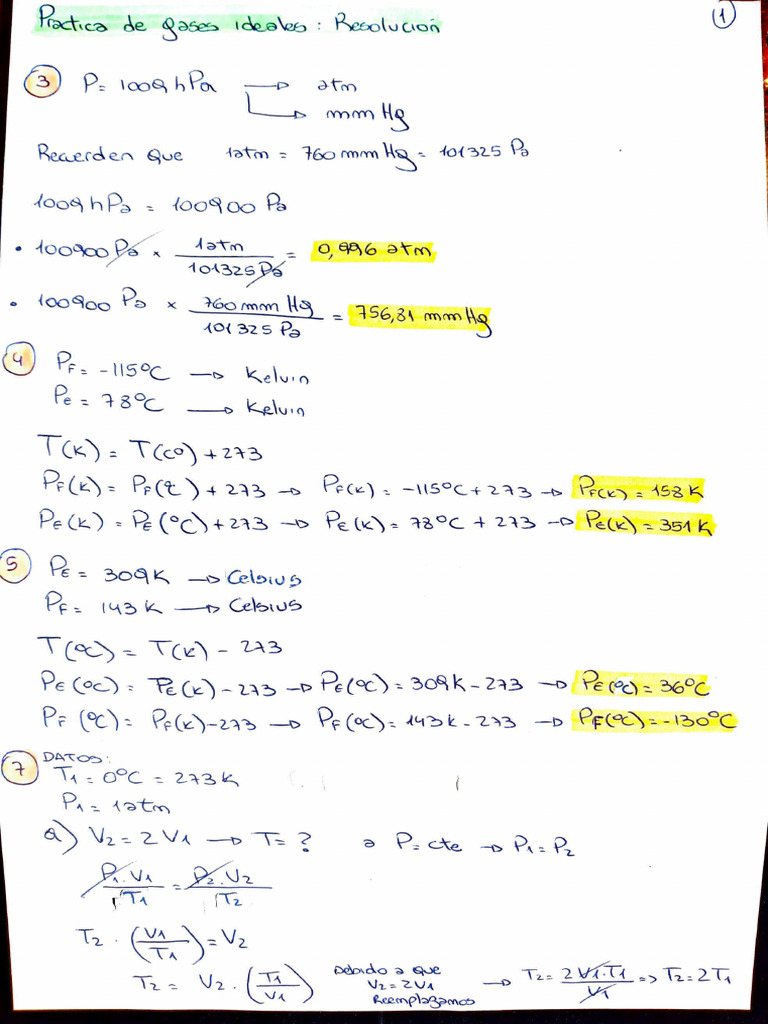 Practica de gases ideales: Resolución
1
3 P= 1009 hPa → atm
→ mm Hg
Recuerden que 1atm = 760 mm Hg = 101325 Pa
1009 hPa = 100900 Pa
• 100900 Pa × 1atm / 101325 Pa = 0,996 atm
• 100900 Pa × 760 mm Hg / 101325 Pa = 756,81 mm Hg
4 PF = -115°C → Kelvin
PE = 78°C → Kelvin
T(K) = T(Cº) + 273
PF(K) = PF(ºC) + 273 → PF(K) = -115°C + 273 → PF(K) = 158 K
PE(K) = PE(ºC) + 273 → PE(K) = 78°C + 273 → PE(K) = 351 K
5 PE = 309K → Celsius
PF = 143 K → Celsius
T(ºC) = T(K) - 273
PE(ºC) = PE(K) - 273 → PE(ºC) = 309K - 273 → PE(ºC) = 36°C
PF(ºC) = PF(K) - 273 → PF(ºC) = 143K - 273 → PF(ºC) = -130°C
7 DATOS:
T1 = 0°C = 273 K
P1 = 1 atm
a) V2 = 2 V1 → T = ? a P = cte → P1 = P2
P1 . V1 / T1 = P2 . V2 / T2
T2 . (V1 / T1) = V2
T2 = V2 . (T1 / V1) Debido a que V2 = 2V1 Reemplazamos → T2 = 2 V1 . T1 / V1 => T2 = 2 T1